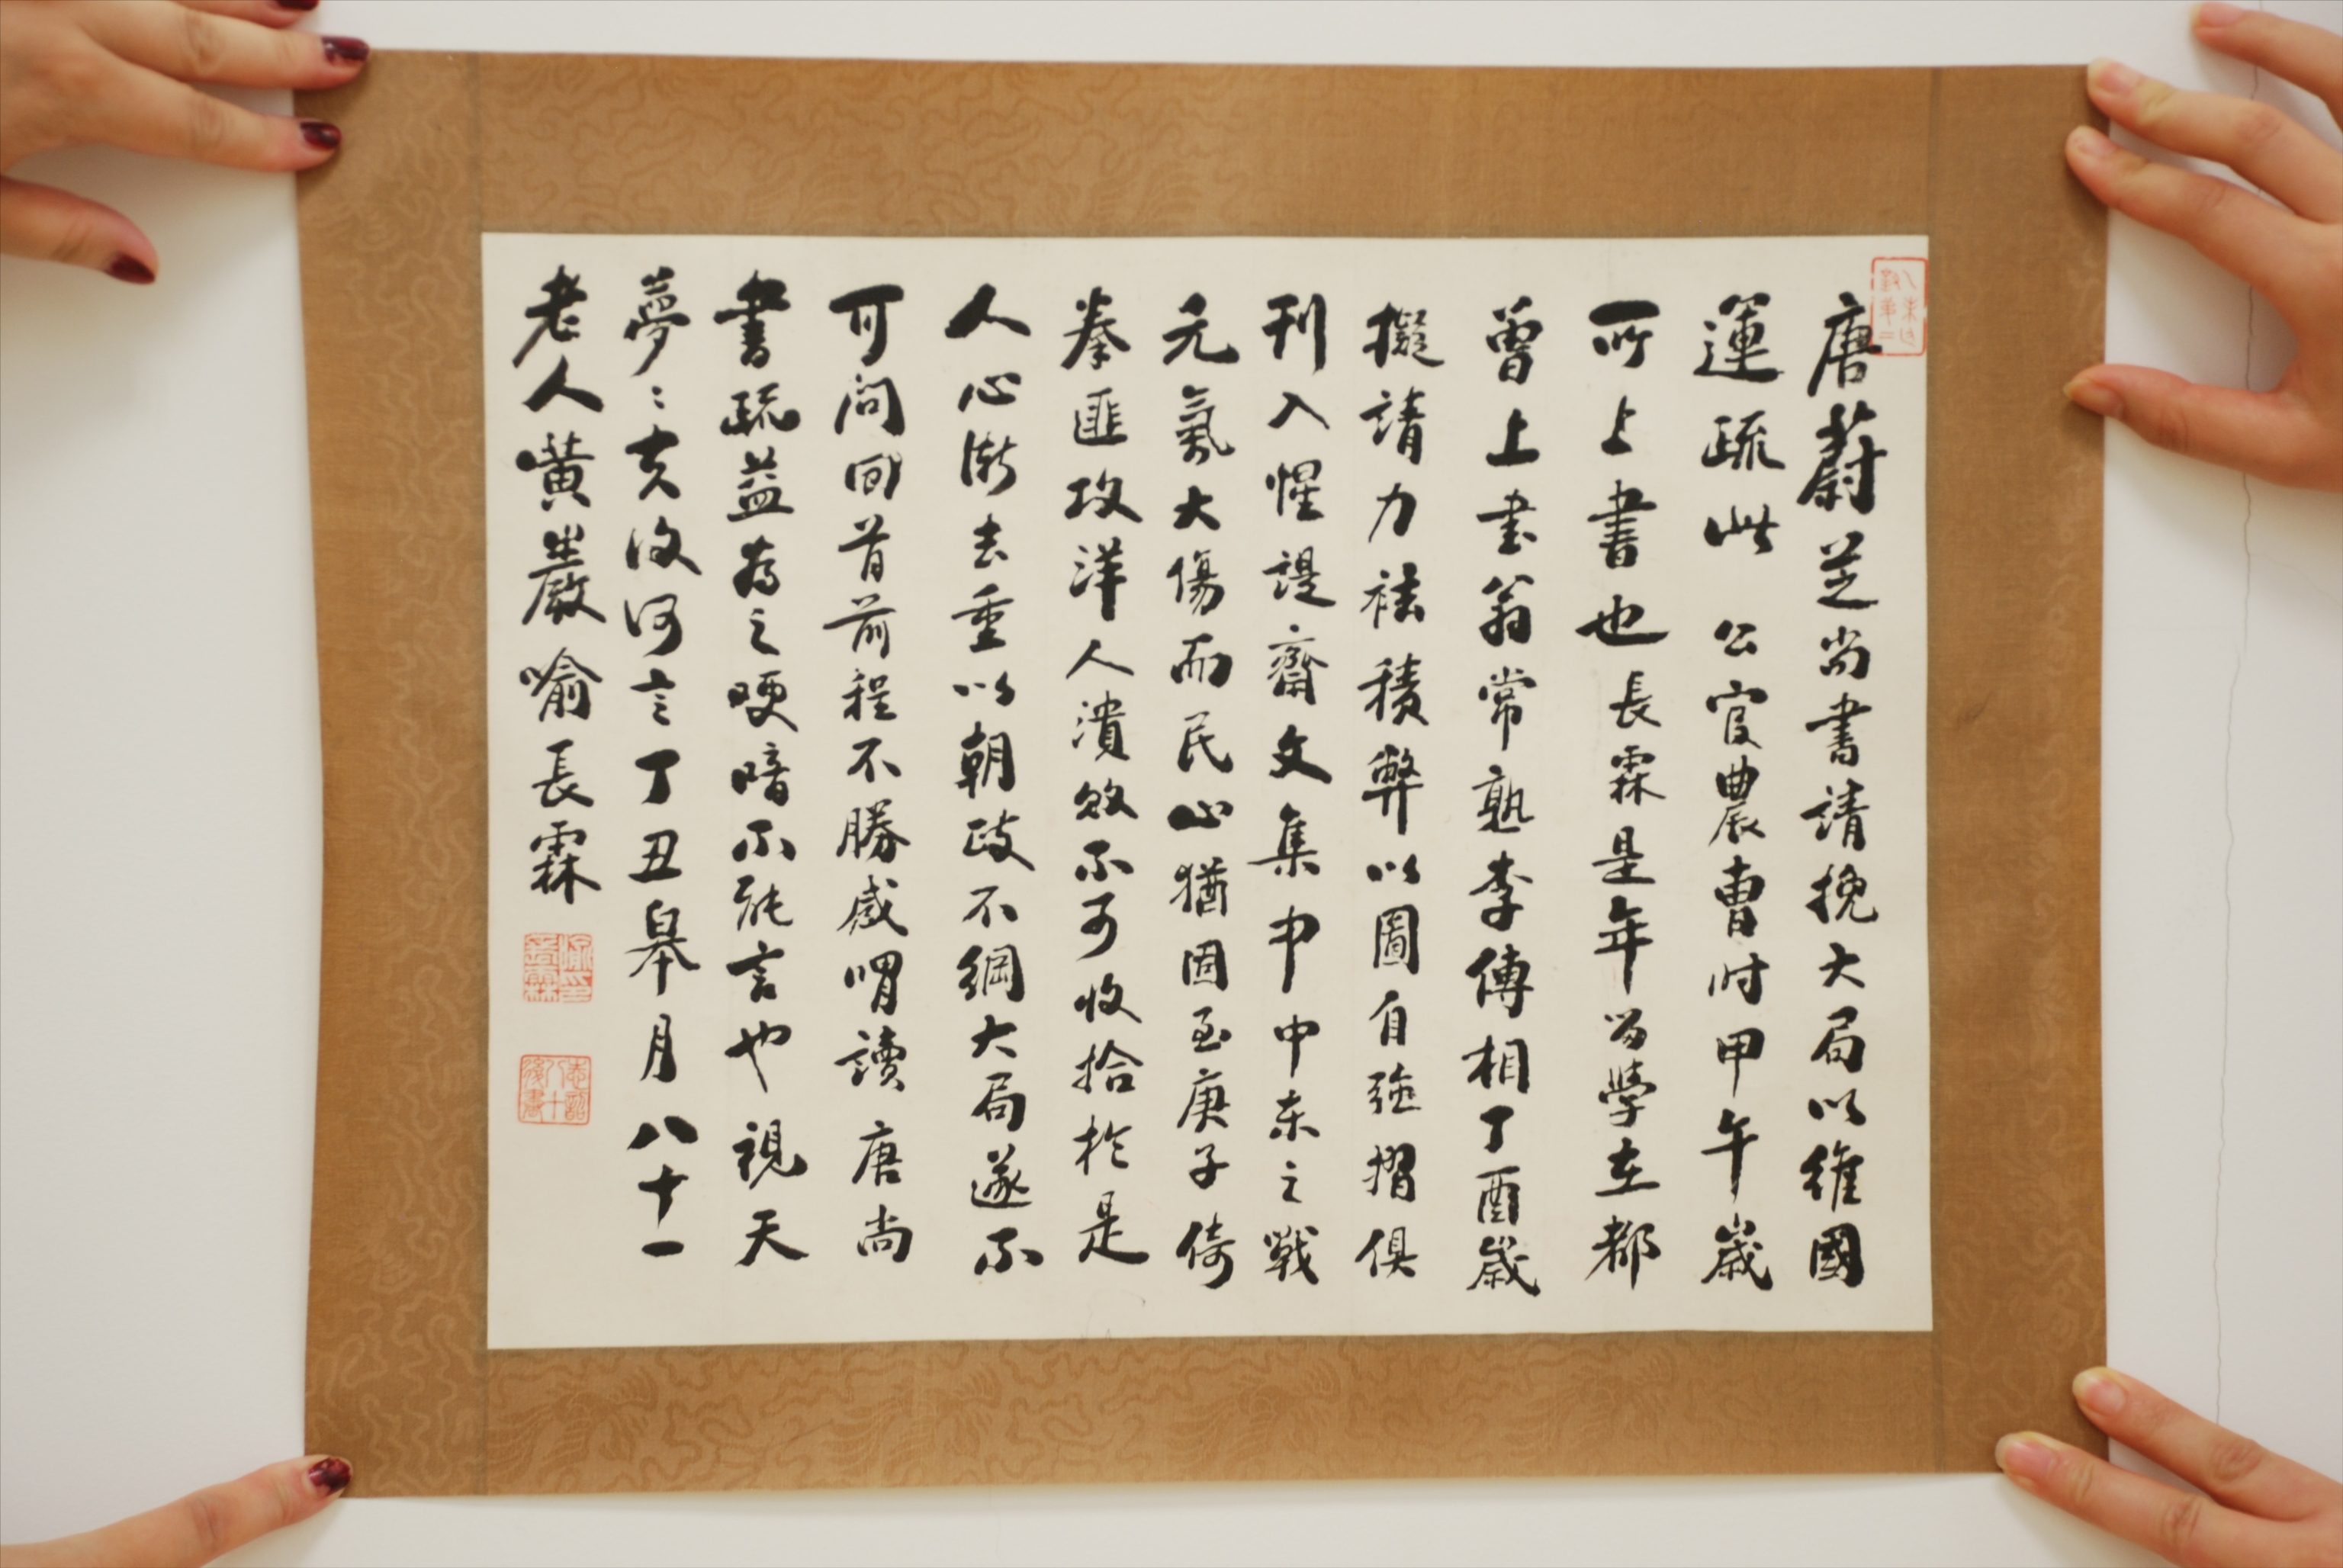 唐蔚芝尚書請挽大局以維國
運疏此 公官農曹時甲午歲
所上書也長霖是年留學在都
曾上書翁常熟李傅相丁酉歲
擬請力祛積弊以圖自強摺俱
刊入惺諟齋文集中中東之戰
元氣大傷而民心猶固至庚子倚
拳匪攻洋人潰敗不可收拾於是
人心漸去重以朝政不綱大局遂不
可問回首前程不勝感喟讀 唐尚
書疏益為之哽喑不能言也視天
夢〻亥汝何言丁丑皋月八十一
老人黃巖喻長霖